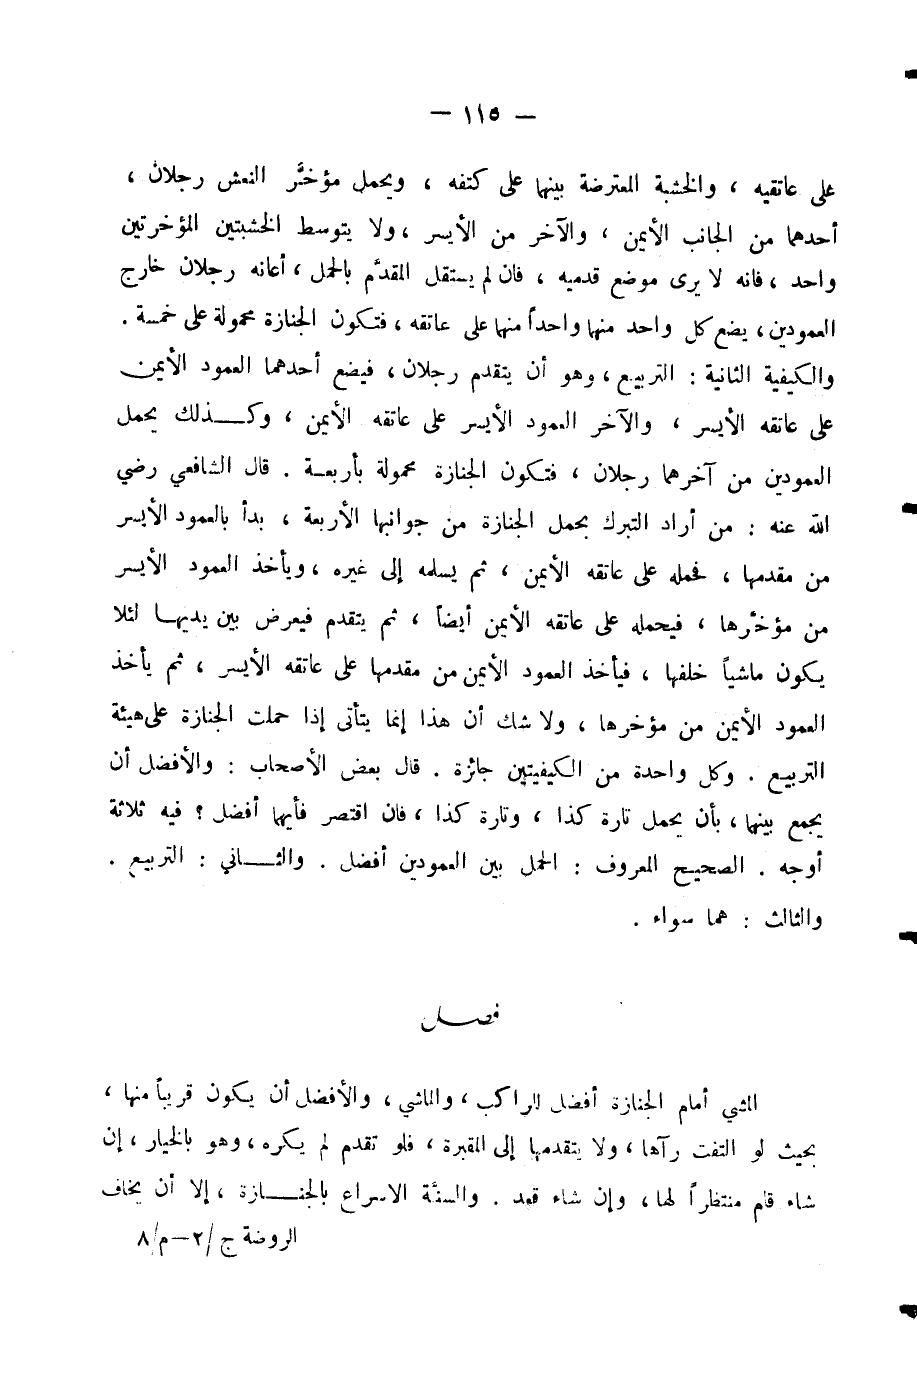 — ١١٥ —
على عاتقيه ، والخشبة المعترضة بينهما على كتفه ، ويحمل مؤخَّر النعش رجلان ،
أحدهما من الجانب الأيمن ، والآخر من الأيسر ، ولا يتوسط الخشبتين المؤخرتين
واحد ، فانه لا يرى موضع قدميه ، فان لم يستقل المقدَّم بالحمل ، أعانه رجلان خارج
العمودين ، يضع كل واحد منهما واحداً منهما على عاتقه ، فتكون الجنازة محمولة على خمسة .
والكيفية الثانية : التربيع ، وهو أن يتقدم رجلان ، فيضع أحدهما العمود الأيمن
على عاتقه الأيسر ، والآخر العمود الأيسر على عاتقه الأيمن ، وكـــذلك يحمل
العمودين من آخرهما رجلان ، فتكون الجنازة محمولة بأربعـة . قال الشافعي رضي
الله عنه : من أراد التبرك بحمل الجنازة من جوانبها الأربعة ، بدأ بالعمود الأيسر
من مقدمها ، فحمله على عاتقه الأيمن ، ثم يسلمه إلى غيره ، ويأخذ العمود الأيسر
من مؤخَّرها ، فيحمله على عاتقه الأيمن أيضاً ، ثم يتقدم فيعرض بين يديهـا لئلا
يكون ماشياً خلفها ، فيأخذ العمود الأيمن من مقدمها على عاتقه الأيسر ، ثم يأخذ
العمود الأيمن من مؤخرها ، ولا شك أن هذا إنما يتأتى إذا حملت الجنازة على هيئة
التربيع . وكل واحدة من الكيفيتين جائزة . قال بعض الأصحاب : والأفضل أن
يجمع بينهما ، بأن يحمل تارة كذا ، وتارة كذا ، فان اقتصر فأيهما أفضل ؟ فيه ثلاثة
أوجه . الصحيح المعروف : الحمل بين العمودين أفضل . والثـــاني : التربيع .
والثالث : هما سواء .
فصـــل
المشي أمام الجنازة أفضل للراكب ، والماشي ، والأفضل أن يكون قريباً منها ،
بحيث لو التفت رآها ، ولا يتقدمها إلى المقبرة ، فلو تقدم لم يكره ، وهو بالخيار ، إن
شاء قام منتظراً لها ، وإن شاء قعد . والسنَّة الاسراع بالجنـــازة ، إلا أن يخاف
الروضة ج /٢–م/٨